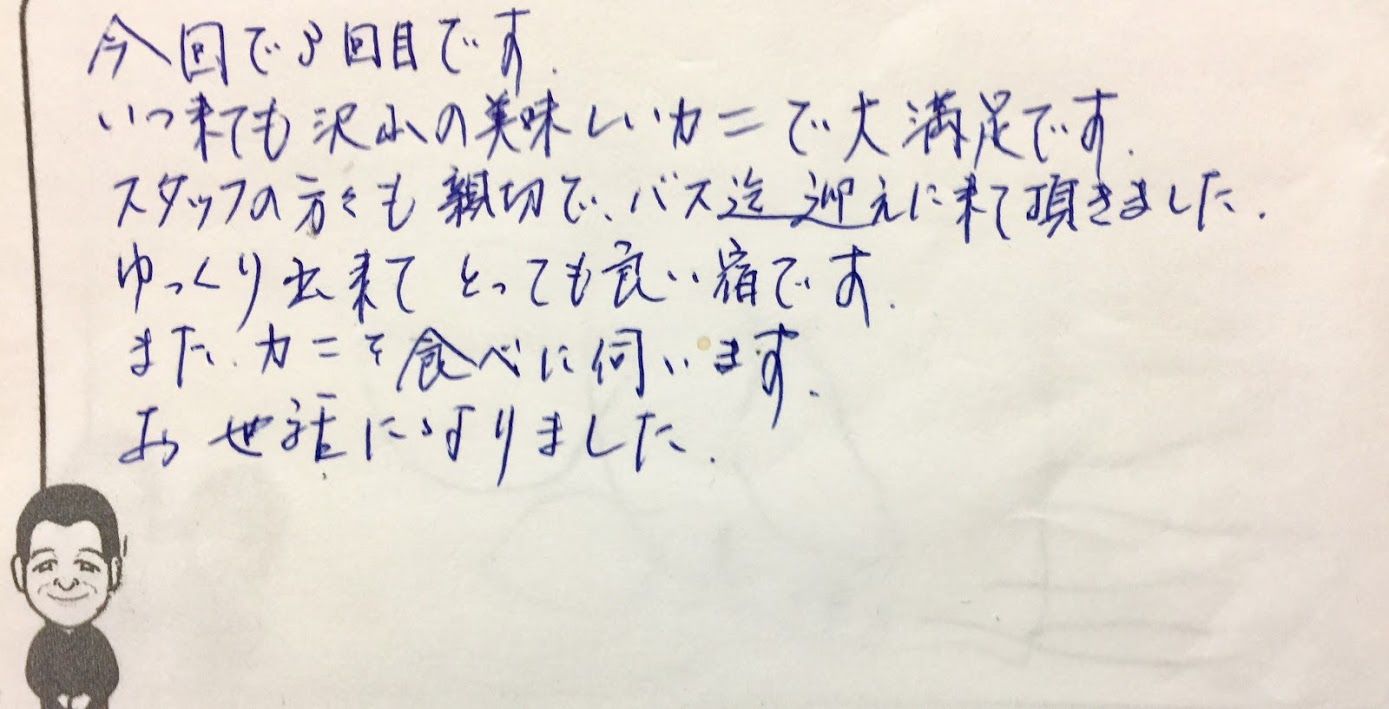 今回で3回目です.
いつ来ても沢山の美味しいカニで大満足です.
スタッフの方々も親切で、バス迄迎えに来て頂きました.
ゆっくり出来てとっても良い宿です.
また、カニを食べに伺います.
お世話になりました.